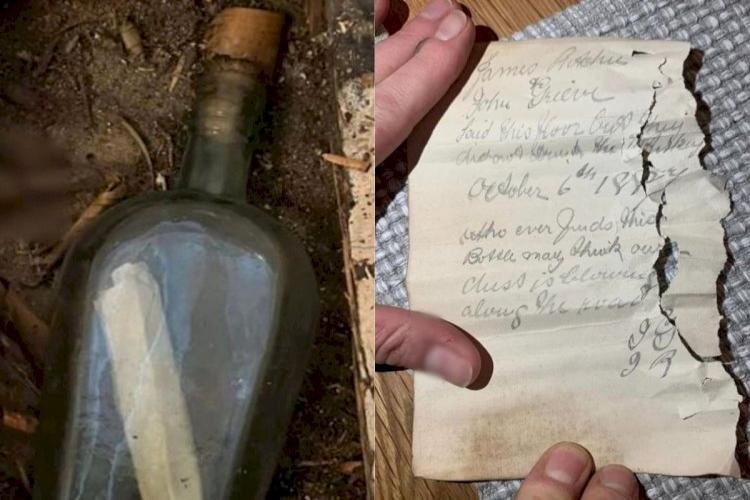 James Ritchie
&
John Grieve
laid this floor but they
did not drink the whisky
October 6th 1887
who ever finds this
Bottle may think our
dust is blowing
along the road
J G
J R